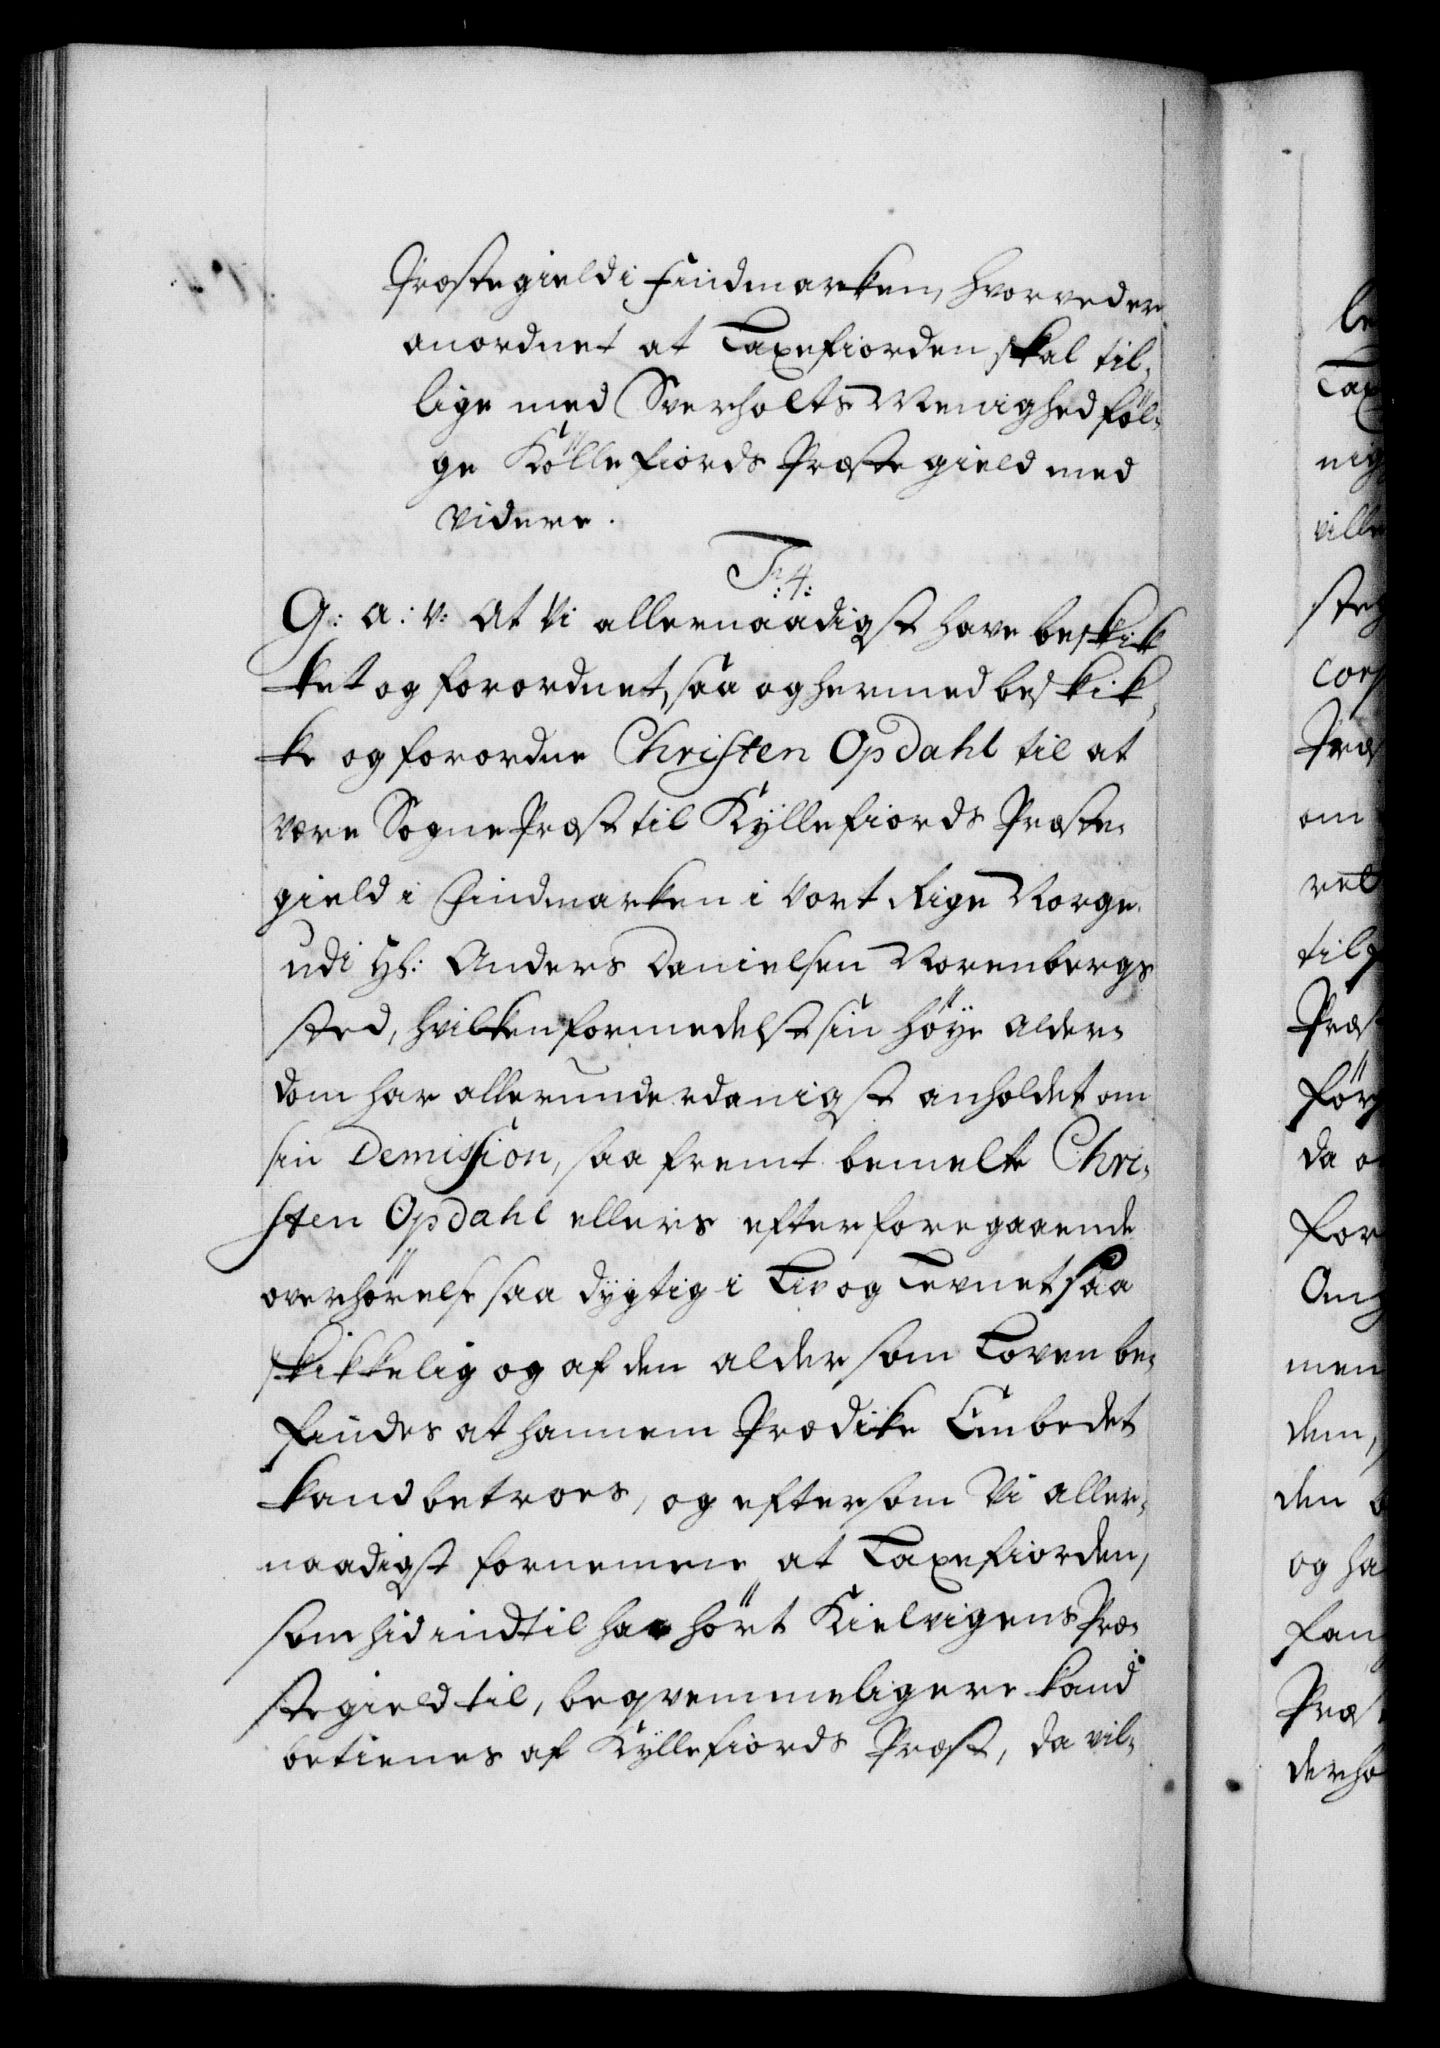 Præstegield i Findmarken, hvorveder
anordnet at Taxefiorden skal til-
lige med Sverholts Menighed föl-
ge Köllefiords Præstegield med
videre.
F: 4:
G: A: V: At Vi allernaadigst have beskik
ket og forordnet, saa og hermed beskik-
ke og forordne Christen Opdahl til at
være Sogne Præst til Kÿllefiords Præste-
gield i Findmarken i Vort Rige Norge
udi Hr: Anders Danielsen Norenbergs
sted, hvilken formedelst sin höye Alder-
dom har allerunderdanigst anholdet om
sin Demission, saafremt bemelte Chri-
sten Opdahl ellers efter foregaaende
overhörelse saa dygtig i Liv og Levnet saa
skikkelig og af den alder som Loven be-
findes at hannem Prædike Embedet
kand betroes, og eftersom Vi aller-
naadigst fornemme at Taxefiorden,
som hidindtil har hört Kielvigens Præ-
stegield til, beqvemmeligere kand
betienes af Kÿllefiords Præst, da vil-